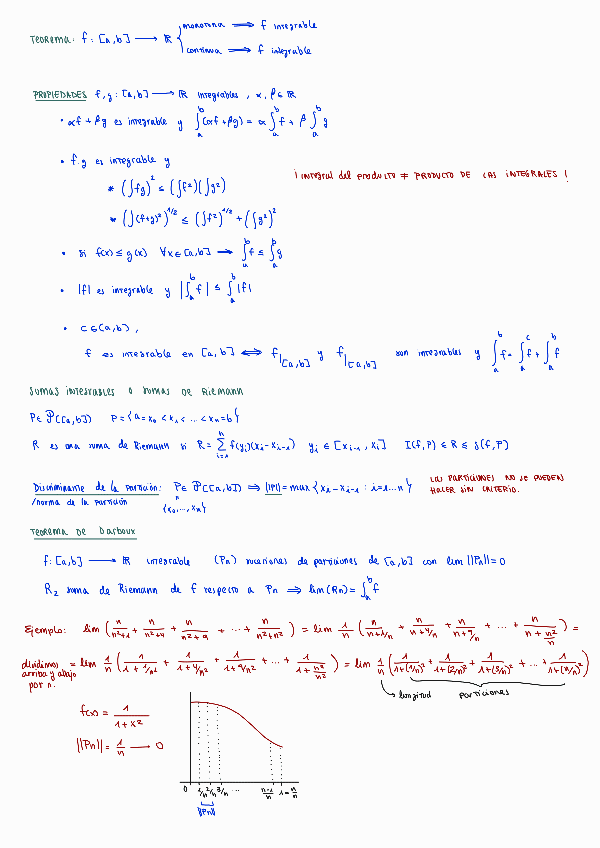 TEOREMA: f: [a,b] ⟶ ℝ { monótona ⟹ f integrable
continua ⟹ f integrable
PROPIEDADES f,g: [a,b] ⟶ ℝ integrables, α, β ∈ ℝ
• αf + βg es integrable y ∫_a^b (αf + βg) = α ∫_a^b f + β ∫_a^b g
• f.g es integrable y
* (∫fg)² ≤ (∫f²)(∫g²)
¡ integral del producto ≠ PRODUCTO DE LAS INTEGRALES !
* (∫(f+g)²)^1/2 ≤ (∫f²)^1/2 + (∫g²)^2
• Si f(x) ≤ g(x) ∀x ∈ [a,b] ⟶ ∫_a^b f ≤ ∫_a^b g
• |f| es integrable y |∫_a^b f| ≤ ∫_a^b |f|
• c ∈ (a,b),
f es integrable en [a,b] ⟺ f|[a,b] y f|[a,b] son integrables y ∫_a^b f = ∫_a^c f + ∫_a^b f
SUMAS INTEGRABLES O SUMAS DE Riemann
P ∈ 𝒫([a,b]) P = {a = x₀ < x₁ < ... < xₙ = b}
R es una suma de Riemann si R = Σ_{i=1}^n f(yᵢ)(xᵢ - xᵢ₋₁) yᵢ ∈ [xᵢ₋₁, xᵢ] I(f,P) ≤ R ≤ S(f,P)
Discriminante de la partición: P ∈ 𝒫([a,b]) ⟹ ||P|| = max {xᵢ - xᵢ₋₁ : i = 1...n}
LAS PARTICIONES NO SE PUEDEN
HACER SIN CRITERIO.
/norma de la partición
{x₀,...,xₙ}
TEOREMA DE Darboux
f: [a,b] ⟶ ℝ integrable (Pn) sucesiones de particiones de [a,b] con lim ||Pn|| = 0
R₂ suma de Riemann de f respecto a Pn ⟹ lim(Rn) = ∫_a^b f
Ejemplo: lim (n/(n²+1) + n/(n²+4) + n/(n²+9) + ... + n/(n²+n²)) = lim 1/n (n/(n+1/n) + n/(n+4/n) + n/(n+9/n) + ... + n/(n+n²/n)) =
dividimos arriba y abajo por n. = lim 1/n (1/(1+1/n²) + 1/(1+4/n²) + 1/(1+9/n²) + ... + 1/(1+n²/n²)) = lim 1/n (1/(1+(1/n)²) + 1/(1+(2/n)²) + 1/(1+(3/n)²) + ... + 1/(1+(n/n)²))
longitud particiones
f(x) = 1/(1+x²)
||Pn|| = 1/n ⟶ 0
0 1/n 2/n 3/n ... (n-1)/n 1 = n/n
||Pn||